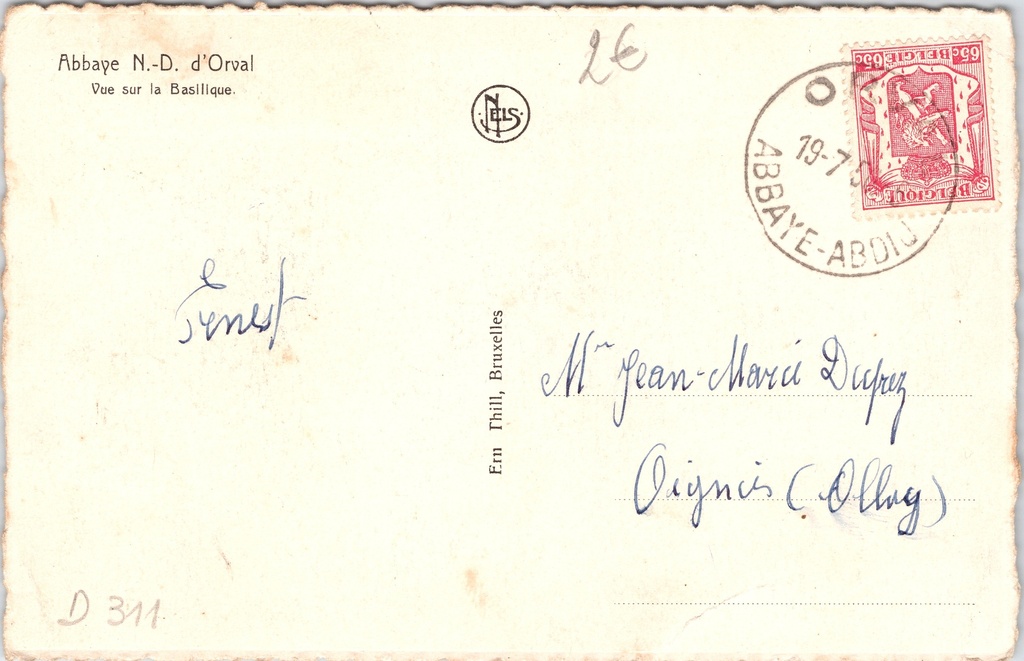 Abbaye N.-D. d'Orval
Vue sur la Basilique.
2€
NELS
BELGIE
65c 65c
BELGIQUE
19-7-5
ABBAYE-ABDIJ
Ernest
Ern Thill, Bruxelles
Mr Jean-Marie Duprez
Oignies (Olloy)
D 311